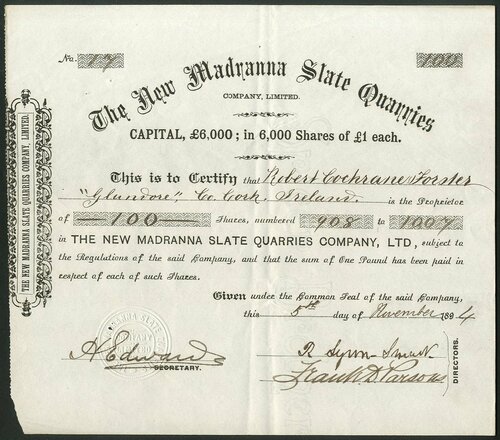 No. 17 100
The New Madranna Slate Quarries
COMPANY, LIMITED.
CAPITAL, £6,000; in 6,000 Shares of £1 each.
This is to Certify that Robert Cochrane Forster
"Glandore", Co. Cork, Ireland. is the Proprietor
of 100 Shares, numbered 908 to 1007
in THE NEW MADRANNA SLATE QUARRIES COMPANY, LTD, subject to
the Regulations of the said Company, and that the sum of One Pound has been paid in
respect of each of such Shares.
Given under the Common Seal of the said Company,
this 5th day of November 1894
A Edwards
SECRETARY.
R
Frank D. Parsons
DIRECTORS.
THE NEW MADRANNA SLATE QUARRIES COMPANY, LIMITED.